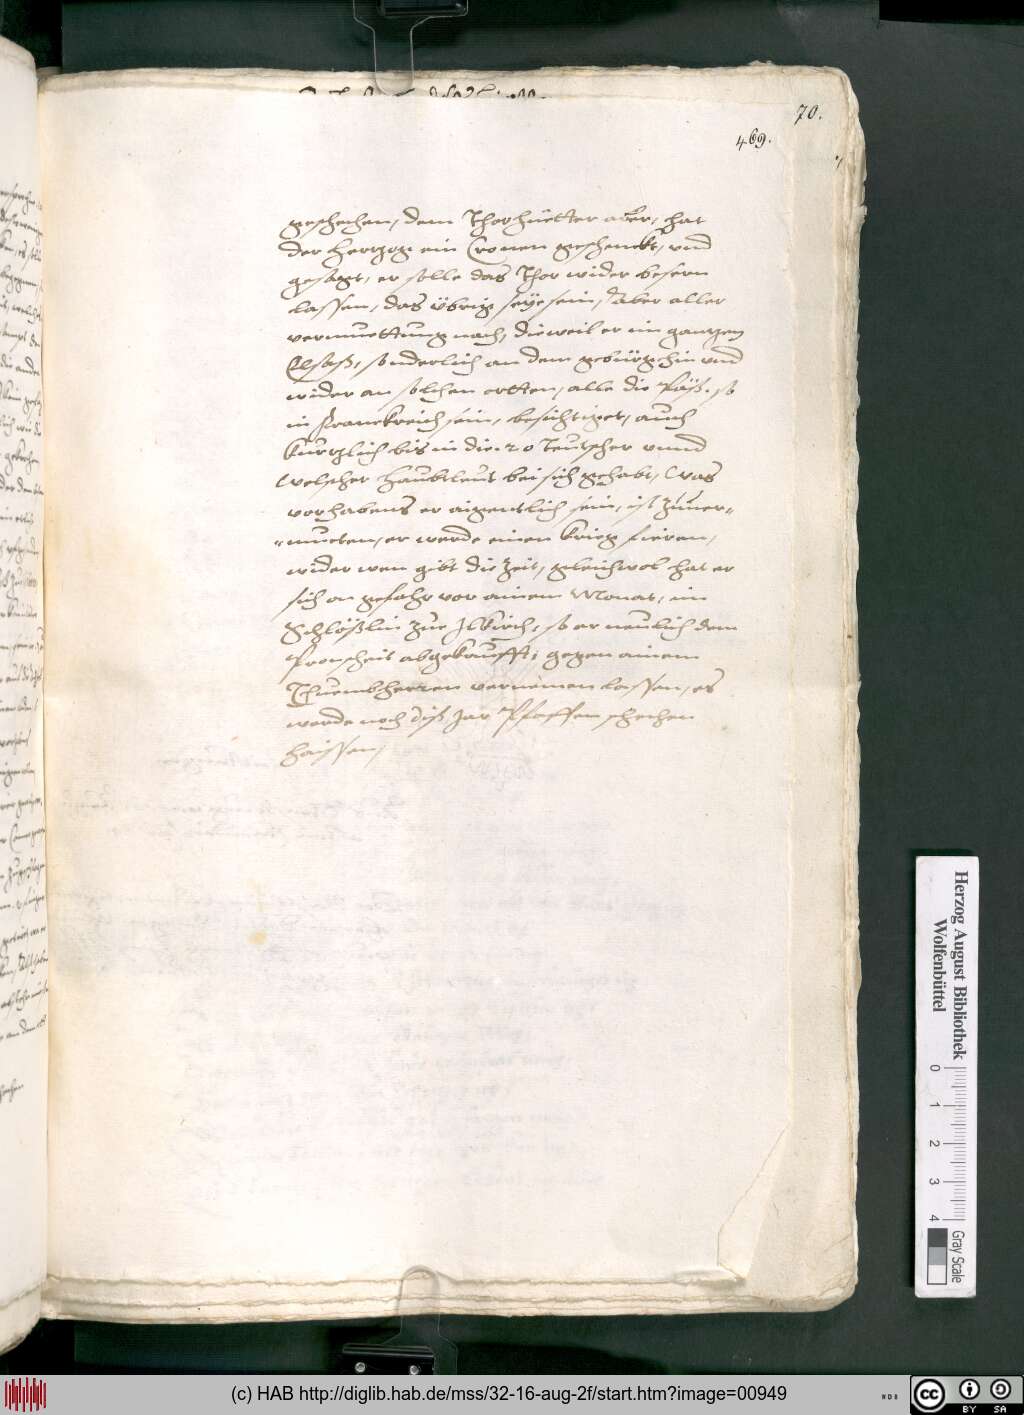 70.
469.
geschehen, dem Thorhüetter aber, hat
der Hertzog ein Cronen geschenckt, vnd
gesagt, er solle das Thor wider besern
lassen, das übrig seye sein, Aber aller
vermuettung nach, dieweil er im gantzen
Elsaß, sonderlich an dem gebürg hin vnd
wider an solchen ortten, alle die Päß, so
in Franckreich sein, besichtiget, auch
kurtzlich bis in die 20 Teutscher vnnd
Welscher Haubtleut bei sich gehabt, Was
vorhabens er aigentlich sein, ist zuuer-
-mueten, er werde einen krieg fieren,
wider wen gibt die Zeit, gleichwol hat er
sich on gefahr vor ainem Monat, im
Schlößlin zue Ilkirch, so er neulich dem
abgekaufft, gegen ainem
Thuembherren vernemen lassen, es
werde noch diß Jar Pfaffen
haissen,
Herzog August Bibliothek
Wolfenbüttel
0 1 2 3 4
Gray Scale
(c) HAB http://diglib.hab.de/mss/32-16-aug-2f/start.htm?image=00949
WDB
cc BY SA